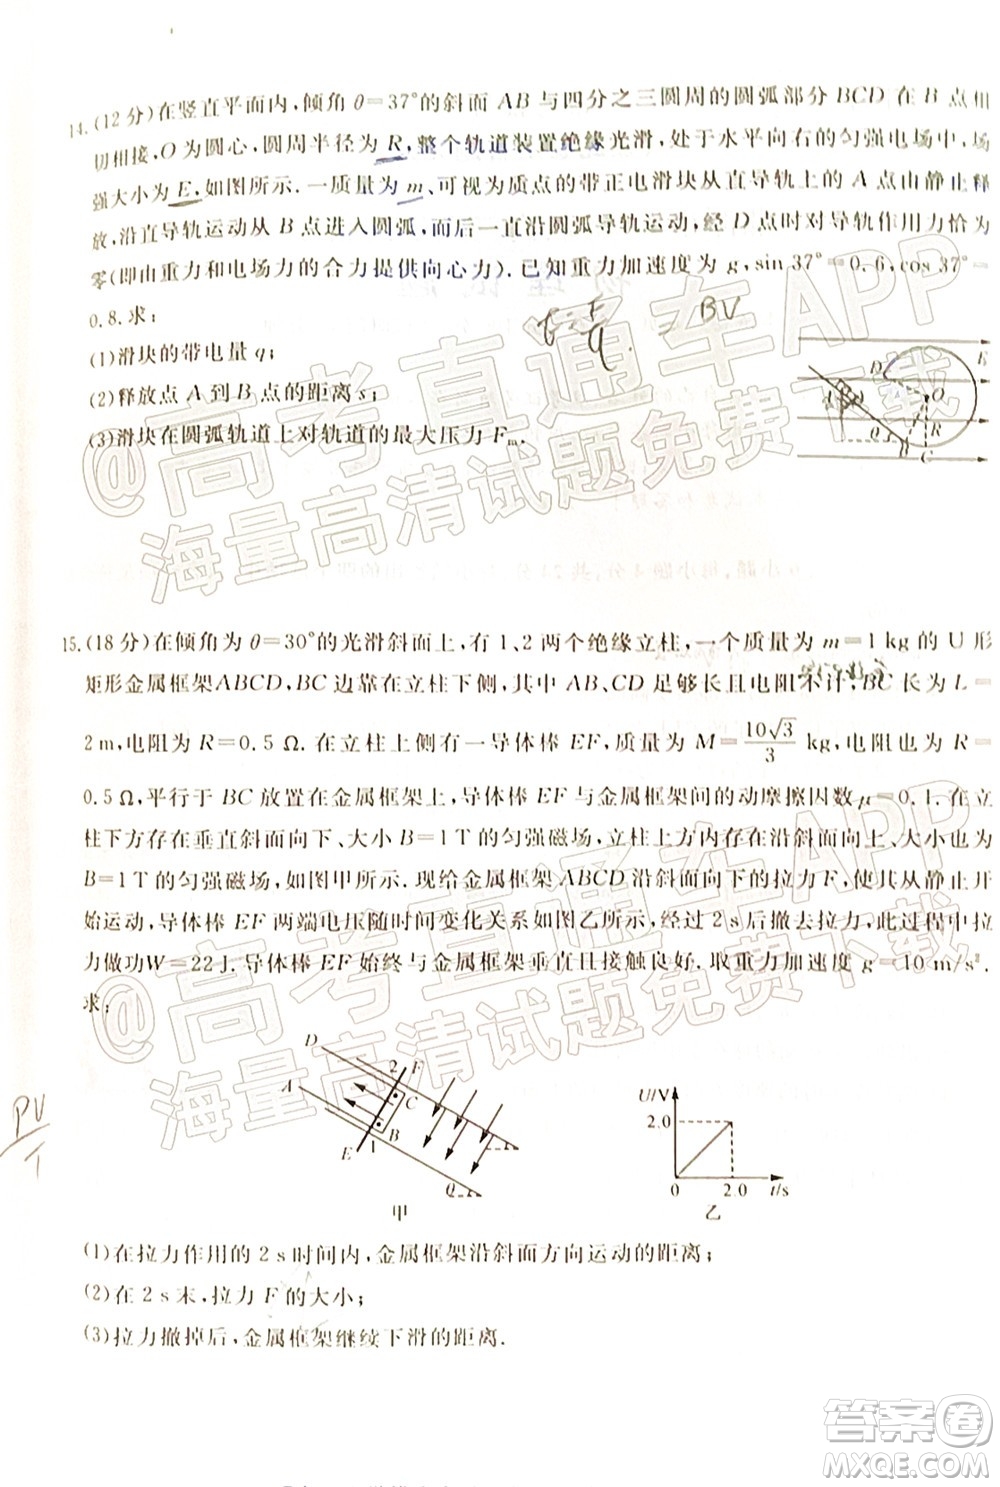 14.(12分)在竖直平面内,倾角θ=37°的斜面AB与四分之三圆周的圆弧部分BCD在B点相
切相接,O为圆心,圆周半径为R,整个轨道装置绝缘光滑,处于水平向右的匀强电场中,场
强大小为E,如图所示.一质量为m、可视为质点的带正电滑块从直导轨上的A点由静止释
放,沿直导轨运动从B点进入圆弧,而后一直沿圆弧导轨运动,经D点时对导轨作用力恰为
零(即由重力和电场力的合力提供向心力).已知重力加速度为g,sin 37°=0.6,cos 37°=
0.8.求:
(1)滑块的带电量q;
(2)释放点A到B点的距离s;
(3)滑块在圆弧轨道上对轨道的最大压力Fm.
BV
D
O
A
θ
R
B
C
15.(18分)在倾角为θ=30°的光滑斜面上,有1、2两个绝缘立柱,一个质量为m=1 kg的U形
矩形金属框架ABCD,BC边靠在立柱下侧,其中AB、CD足够长且电阻不计,BC长为L=
2 m,电阻为R=0.5 Ω.在立柱上侧有一导体棒EF,质量为M=10√3/3 kg,电阻也为R=
0.5 Ω,平行于BC放置在金属框架上,导体棒EF与金属框架间的动摩擦因数μ=0.1.在立
柱下方存在垂直斜面向下、大小B=1 T的匀强磁场,立柱上方内存在沿斜面向上、大小也为
B=1 T的匀强磁场,如图甲所示.现给金属框架ABCD沿斜面向下的拉力F,使其从静止开
始运动,导体棒EF两端电压随时间变化关系如图乙所示,经过2 s后撤去拉力,此过程中拉
力做功W=22 J.导体棒EF始终与金属框架垂直且接触良好,取重力加速度g=10 m/s².
求:
D
2 F
A
C
B
E 1
Q
甲
U/V
2.0
0 2.0 t/s
乙
PV
T
(1)在拉力作用的2 s时间内,金属框架沿斜面方向运动的距离;
(2)在2 s末,拉力F的大小;
(3)拉力撤掉后,金属框架继续下滑的距离.
@高考直通车APP
海量高清试题免费下载
@高考直通车APP
海量高清试题免费下载
答案卷
MXQE.COM